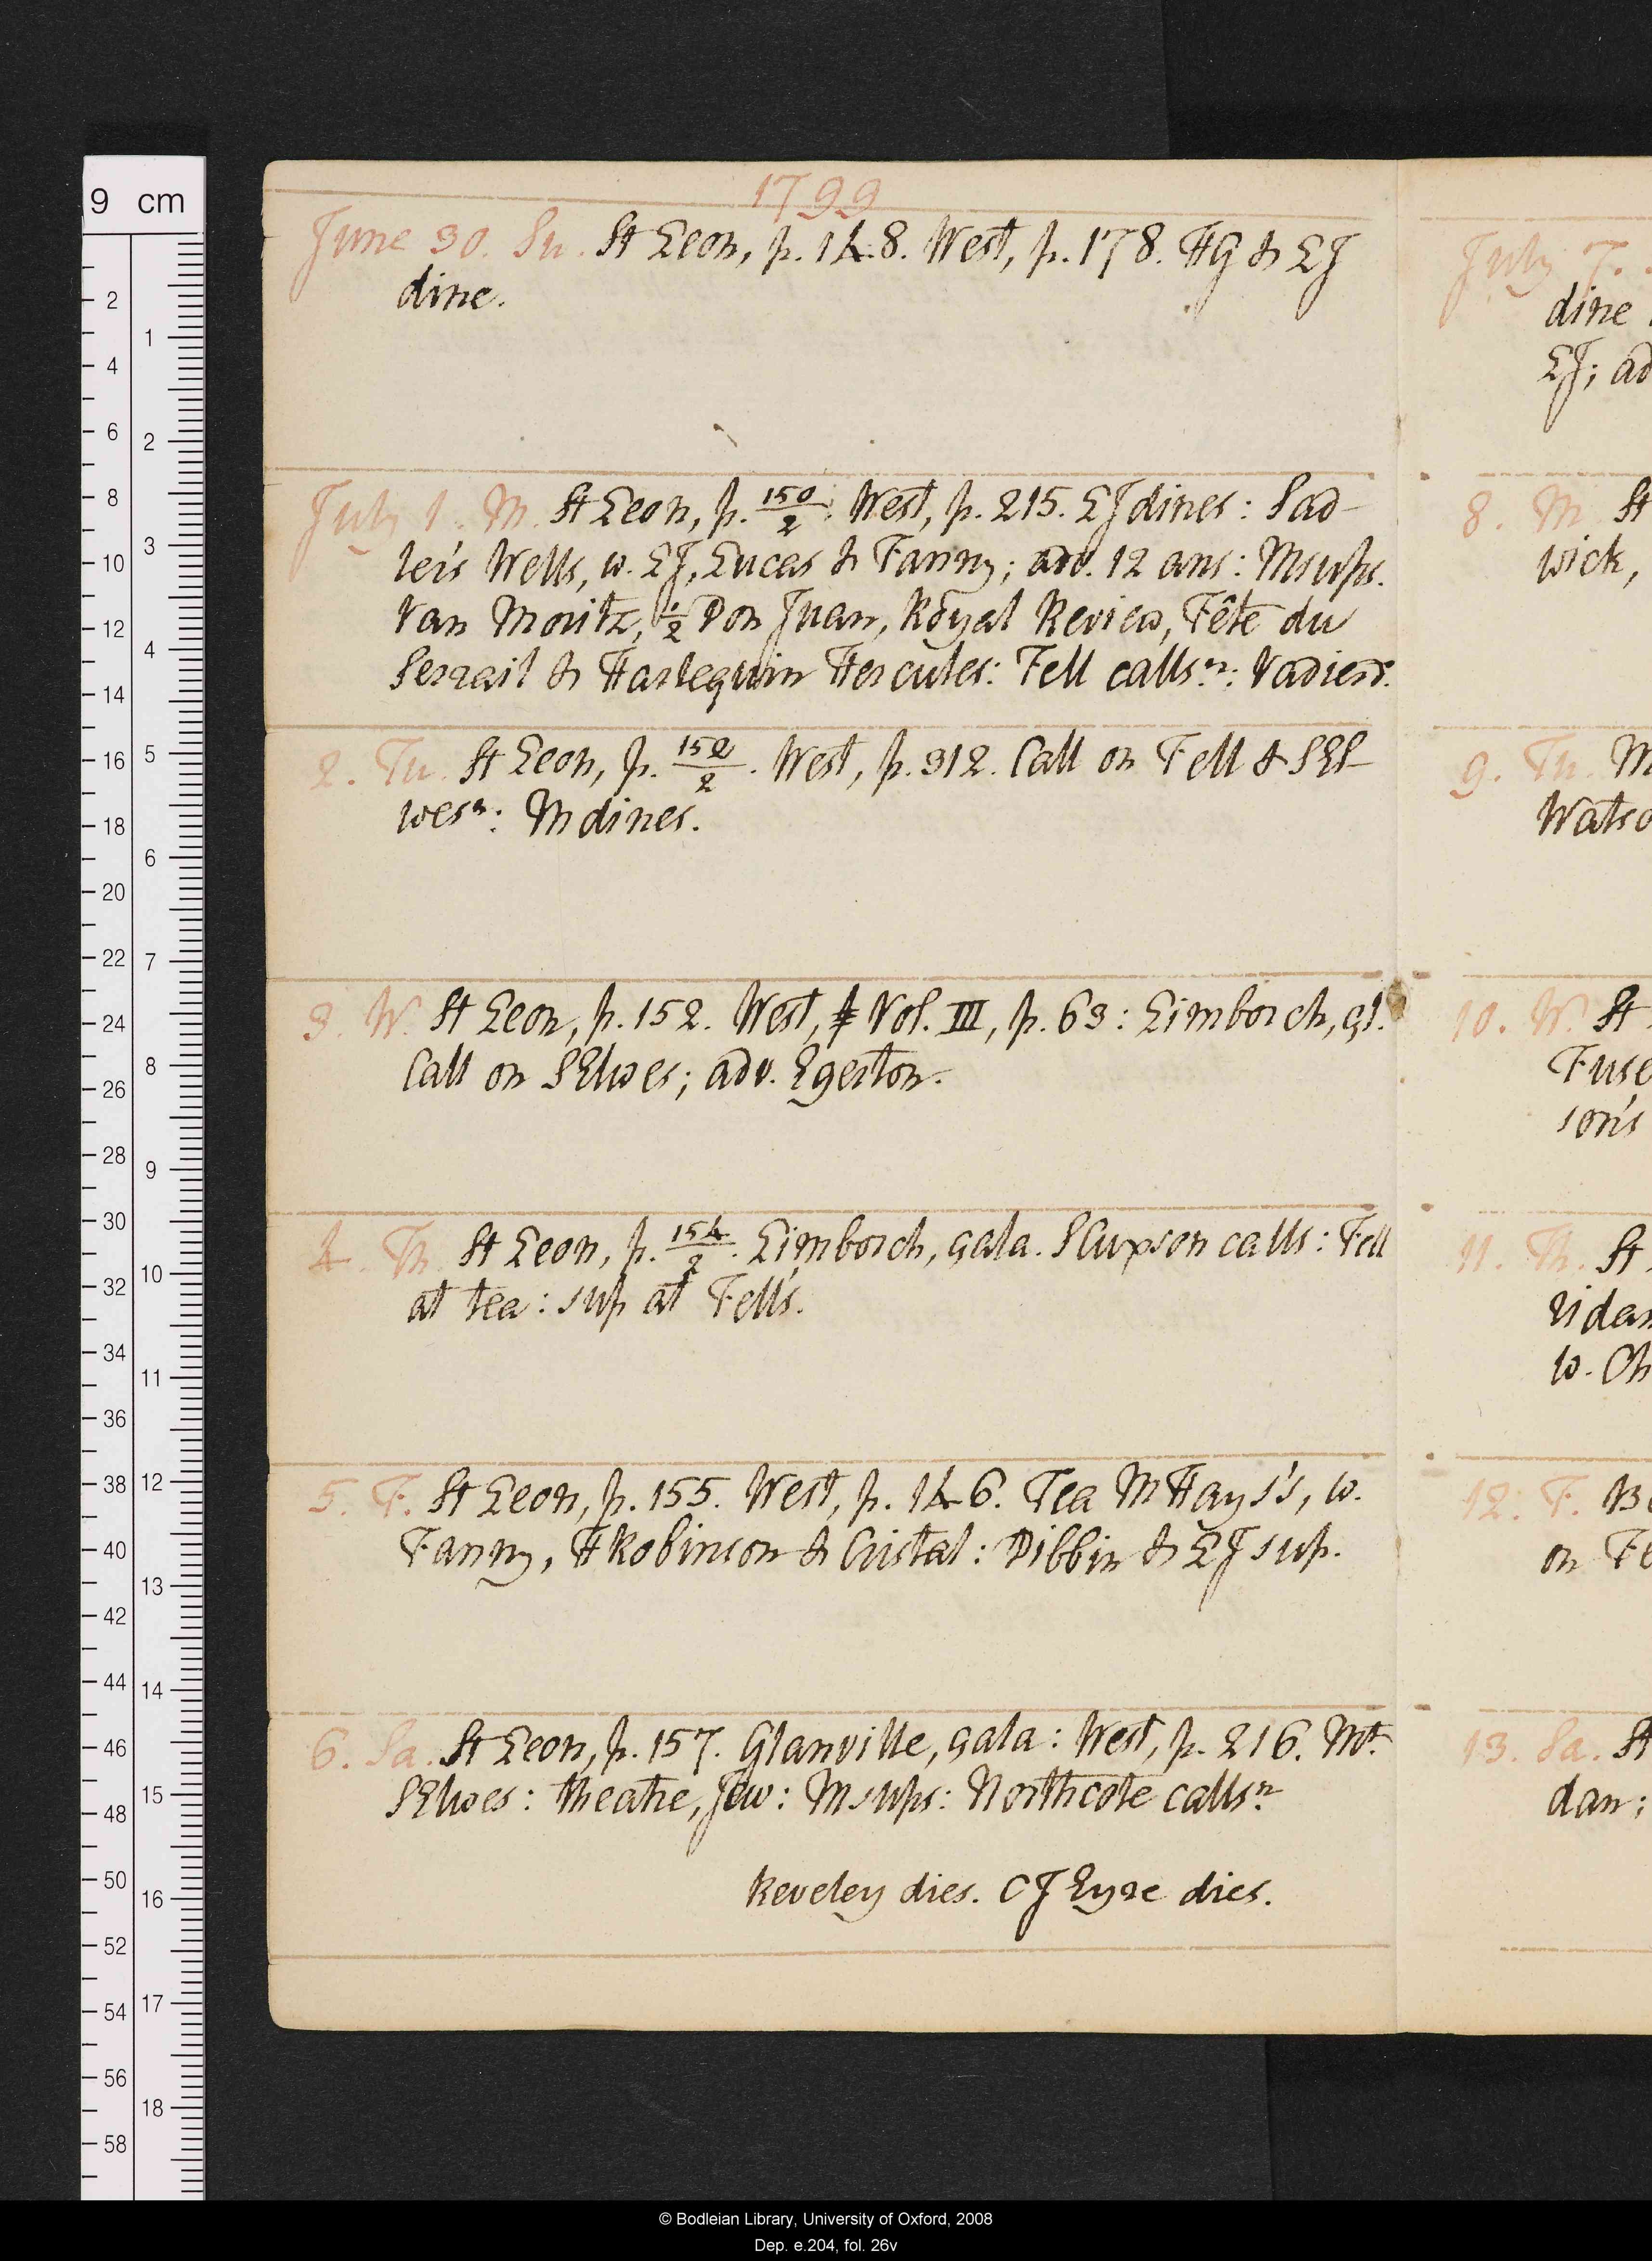 1799
June 30. Su. St Leon, p. 148. West, p. 178. HG & LJ
dine.
July 1. M. St Leon, p. 150/2. West, p. 215. LJ dines: Sad-
ler's Wells, w. LJ, Lucas & Fanny; adv. 12 ans: M sups.
Van Moritz, 1/2 Don Juan, Royal Review, Fête du
Serrail & Harlequin Hercules: Fell calls n: Vadier d.
2. Tu. St Leon, p. 152/2. West, p. 312. Call on Fell & SEl-
wes n: M dines.
3. W. St Leon, p. 152. West, Vol. III, p. 63: Limborch, gl.
Call on SElwes; adv. Egerton.
4. Th. St Leon, p. 154/2. Limborch, gala. calls: Fell
at tea: sup at Fell's.
5. F. St Leon, p. 155. West, p. 146. Tea M Hays's, w.
Fanny, H Robinson & Cristal: Dibbin & LJ sup.
6. Sa. St Leon, p. 157. Glanville, gala: West, p. 216. Mt.
SElwes: theatre, Jew: M sups: Northcote calls n.
Reveley dies. CJ Eyre dies.
July 7.
dine
LJ; ad
8. M. St
wick,
9. Tu. M
Watso
10. W. St
Fuse
son's
11. Th. St
ridan
w. Ch
12. F.
on Fe
13. Sa. St
dan;
9 cm
2
4
6
8
10
12
14
16
18
20
22
24
26
28
30
32
34
36
38
40
42
44
46
48
50
52
54
56
58
1
2
3
4
5
6
7
8
9
10
11
12
13
14
15
16
17
18
© Bodleian Library, University of Oxford, 2008
Dep. e.204, fol. 26v